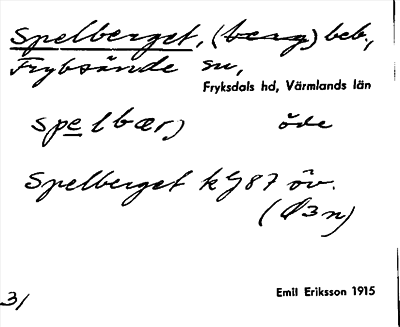 Spelberget, (berg) beb.,
Fryksände sn,
Fryksdals hd, Värmlands län
spelbær, öde
Spelberget kj 87 öv.
(Ö3n)
31 Emil Eriksson 1915